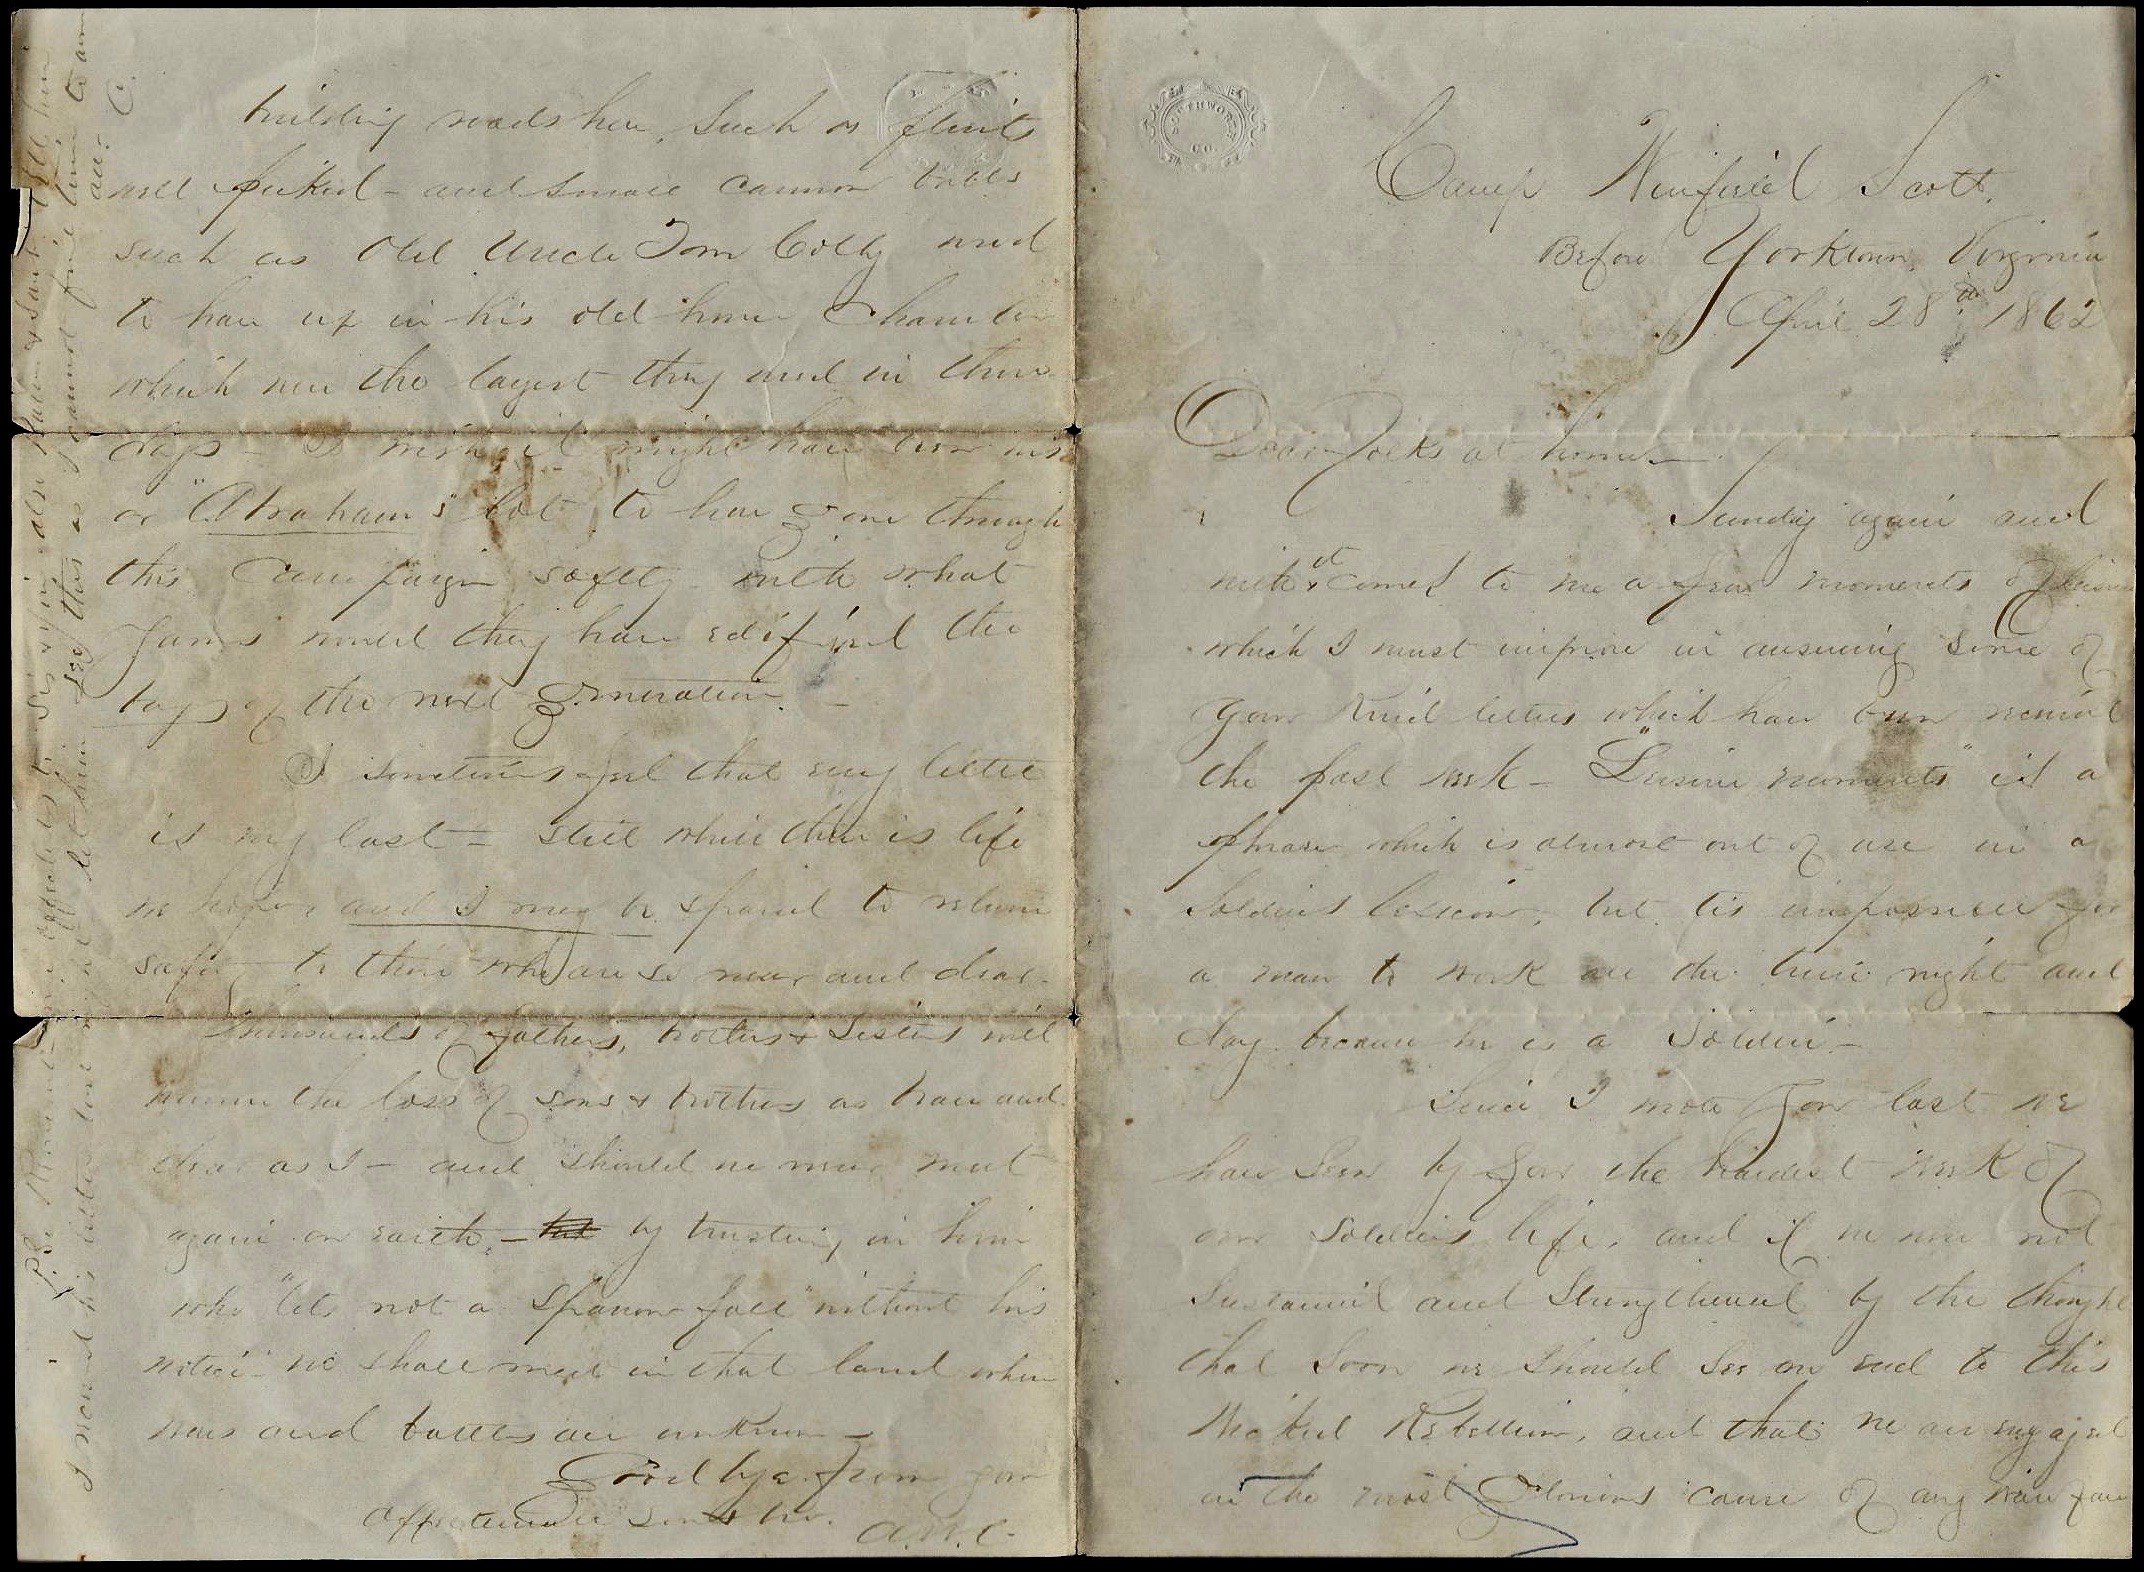 Camp Winfield Scott.
Before Yorktown, Virginia
April 28th 1862
Dear Folks at home
Sunday again and
with it comes to me a few moments of leisure
which I must improve in answering some of
your kind letters which have been received
the past week - "Leisure moments" is a
phrase which is almost out of use in a
Soldiers Lexicon, but tis impossible for
a man to work all the time night and
day because he is a Soldier -
Since I wrote you last we
have seen by far the hardest work of
our soldiers life, and if we were not
sustained and strengthened by the thought
that soon we should see an end to this
Wicked Rebellion, and that we are engaged
in the most Glorious cause of any warfare
building roads here, such as flints
well picked - and small cannon balls
such as Old Uncle Tom Colby used
to have up in his old home Chamber
which were the largest they used in those
days - I wish it might have been his
or "Abrahams" lot to have gone through
this Campaign safely with what
yarns would they have edified the
boys of the next generation. -
I sometimes feel that every letter
is my last - still while there is life
we hope, and I may be spared to return
safely to those who are so near and dear.
Thousands of fathers, brothers & sisters will
mourn the loss of sons & brothers as brave and
dear as I - and should we never meet
again on earth, - by trusting in him
who "lets not a sparrow fall" without his
notice we shall meet in that land where
wars and battles are unknown -
Good bye from your
Affectionate son & bro. A.W.C.
P.S. Remember me
I received his letter last night let him see this as I cannot find time to answer
all. C.
SOUTHWORTH
CO.